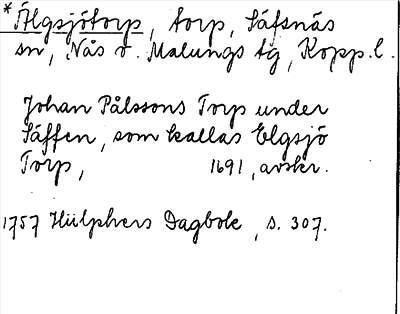 * Älgsjötorp, torp, Säfsnäs
sn, Nås o. Malungs tg, Kopp. l.
Johan Pålssons Torp under
Säffen, som kallas Elgsjö
Torp, 1691, avskr.
1757 Hülphers Dagbok, s. 307.